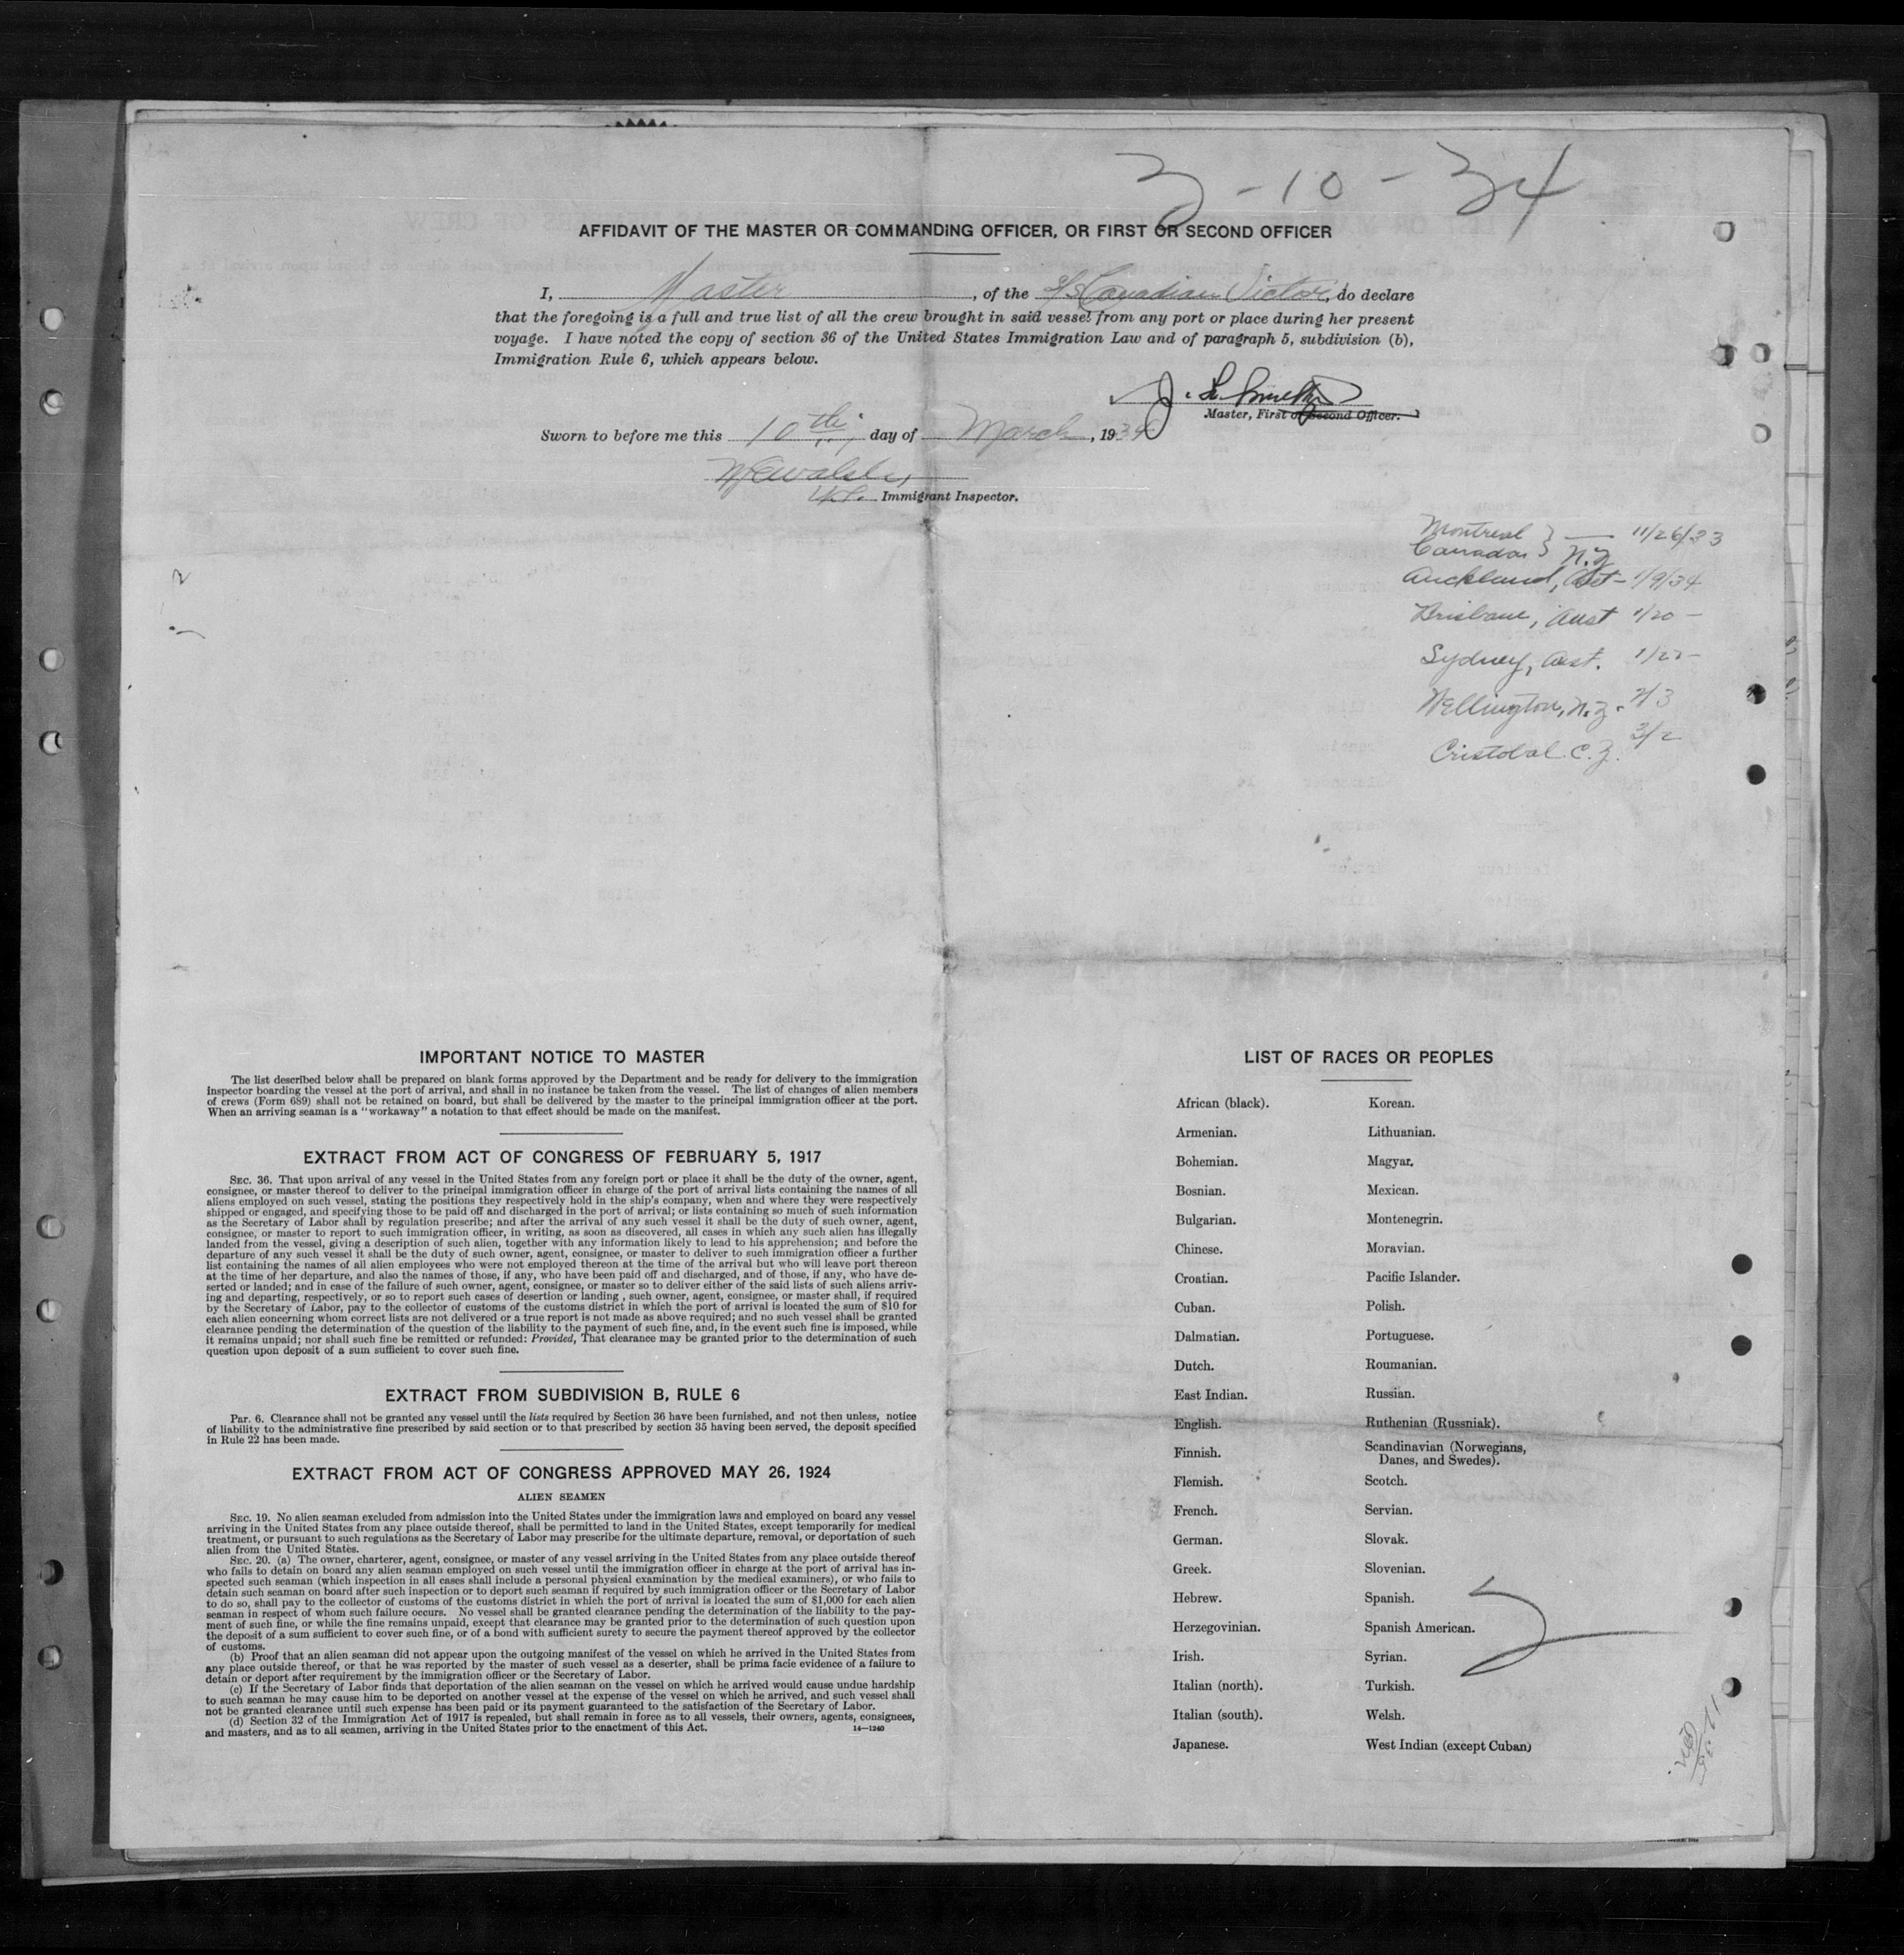 3-10-34
AFFIDAVIT OF THE MASTER OR COMMANDING OFFICER, OR FIRST OR SECOND OFFICER
I, Master, of the S/S Canadian Victor, do declare
that the foregoing is a full and true list of all the crew brought in said vessel from any port or place during her present
voyage. I have noted the copy of section 36 of the United States Immigration Law and of paragraph 5, subdivision (b),
Immigration Rule 6, which appears below.
Master, First or Second Officer.
Sworn to before me this 10th day of March, 1934
Immigrant Inspector.
Montreal } — 11/26/33
Canada
N.Z
Auckland, 1/9/34
Brisbane, Aust 1/20 —
Sydney, Aust. 1/22 —
Wellington, N.Z. 2/3
Cristobal C.Z. 3/2
IMPORTANT NOTICE TO MASTER
The list described below shall be prepared on blank forms approved by the Department and be ready for delivery to the immigration
inspector boarding the vessel at the port of arrival, and shall in no instance be taken from the vessel. The list of changes of alien members
of crews (Form 689) shall not be retained on board, but shall be delivered by the master to the principal immigration officer at the port.
When an arriving seaman is a "workaway" a notation to that effect should be made on the manifest.
EXTRACT FROM ACT OF CONGRESS OF FEBRUARY 5, 1917
SEC. 36. That upon arrival of any vessel in the United States from any foreign port or place it shall be the duty of the owner, agent,
consignee, or master thereof to deliver to the principal immigration officer in charge of the port of arrival lists containing the names of all
aliens employed on such vessel, stating the positions they respectively hold in the ship's company, when and where they were respectively
shipped or engaged, and specifying those to be paid off and discharged in the port of arrival; or lists containing so much of such information
as the Secretary of Labor shall by regulation prescribe; and after the arrival of any such vessel it shall be the duty of such owner, agent,
consignee, or master to report to such immigration officer, in writing, as soon as discovered, all cases in which any such alien has illegally
landed from the vessel, giving a description of such alien, together with any information likely to lead to his apprehension; and before the
departure of any such vessel it shall be the duty of such owner, agent, consignee, or master to deliver to such immigration officer a further
list containing the names of all alien employees who were not employed thereon at the time of the arrival but who will leave port thereon
at the time of her departure, and also the names of those, if any, who have been paid off and discharged, and of those, if any, who have de-
serted or landed; and in case of the failure of such owner, agent, consignee, or master so to deliver either of the said lists of such aliens arriv-
ing and departing, respectively, or so to report such cases of desertion or landing, such owner, agent, consignee, or master shall, if required
by the Secretary of Labor, pay to the collector of customs of the customs district in which the port of arrival is located the sum of $10 for
each alien concerning whom correct lists are not delivered or a true report is not made as above required; and no such vessel shall be granted
clearance pending the determination of the question of the liability to the payment of such fine, and, in the event such fine is imposed, while
it remains unpaid; nor shall such fine be remitted or refunded: Provided, That clearance may be granted prior to the determination of such
question upon deposit of a sum sufficient to cover such fine.
EXTRACT FROM SUBDIVISION B, RULE 6
Par. 6. Clearance shall not be granted any vessel until the lists required by Section 36 have been furnished, and not then unless, notice
of liability to the administrative fine prescribed by said section or to that prescribed by section 35 having been served, the deposit specified
in Rule 22 has been made.
EXTRACT FROM ACT OF CONGRESS APPROVED MAY 26, 1924
ALIEN SEAMEN
SEC. 19. No alien seaman excluded from admission into the United States under the immigration laws and employed on board any vessel
arriving in the United States from any place outside thereof, shall be permitted to land in the United States, except temporarily for medical
treatment, or pursuant to such regulations as the Secretary of Labor may prescribe for the ultimate departure, removal, or deportation of such
alien from the United States.
SEC. 20. (a) The owner, charterer, agent, consignee, or master of any vessel arriving in the United States from any place outside thereof
who fails to detain on board any alien seaman employed on such vessel until the immigration officer in charge at the port of arrival has in-
spected such seaman (which inspection in all cases shall include a personal physical examination by the medical examiners), or who fails to
detain such seaman on board after such inspection or to deport such seaman if required by such immigration officer or the Secretary of Labor
to do so, shall pay to the collector of customs of the customs district in which the port of arrival is located the sum of $1,000 for each alien
seaman in respect of whom such failure occurs. No vessel shall be granted clearance pending the determination of the liability to the pay-
ment of such fine, or while the fine remains unpaid, except that clearance may be granted prior to the determination of such question upon
the deposit of a sum sufficient to cover such fine, or of a bond with sufficient surety to secure the payment thereof approved by the collector
of customs.
(b) Proof that an alien seaman did not appear upon the outgoing manifest of the vessel on which he arrived in the United States from
any place outside thereof, or that he was reported by the master of such vessel as a deserter, shall be prima facie evidence of a failure to
detain or deport after requirement by the immigration officer or the Secretary of Labor.
(c) If the Secretary of Labor finds that deportation of the alien seaman on the vessel on which he arrived would cause undue hardship
to such seaman he may cause him to be deported on another vessel at the expense of the vessel on which he arrived, and such vessel shall
not be granted clearance until such expense has been paid or its payment guaranteed to the satisfaction of the Secretary of Labor.
(d) Section 32 of the Immigration Act of 1917 is repealed, but shall remain in force as to all vessels, their owners, agents, consignees,
and masters, and as to all seamen, arriving in the United States prior to the enactment of this Act. 14—1240
LIST OF RACES OR PEOPLES
African (black). Korean.
Armenian. Lithuanian.
Bohemian. Magyar.
Bosnian. Mexican.
Bulgarian. Montenegrin.
Chinese. Moravian.
Croatian. Pacific Islander.
Cuban. Polish.
Dalmatian. Portuguese.
Dutch. Roumanian.
East Indian. Russian.
English. Ruthenian (Russniak).
Finnish. Scandinavian (Norwegians,
Danes, and Swedes).
Flemish. Scotch.
French. Servian.
German. Slovak.
Greek. Slovenian.
Hebrew. Spanish.
Herzegovinian. Spanish American.
Irish. Syrian.
Italian (north). Turkish.
Italian (south). Welsh.
Japanese. West Indian (except Cuban)